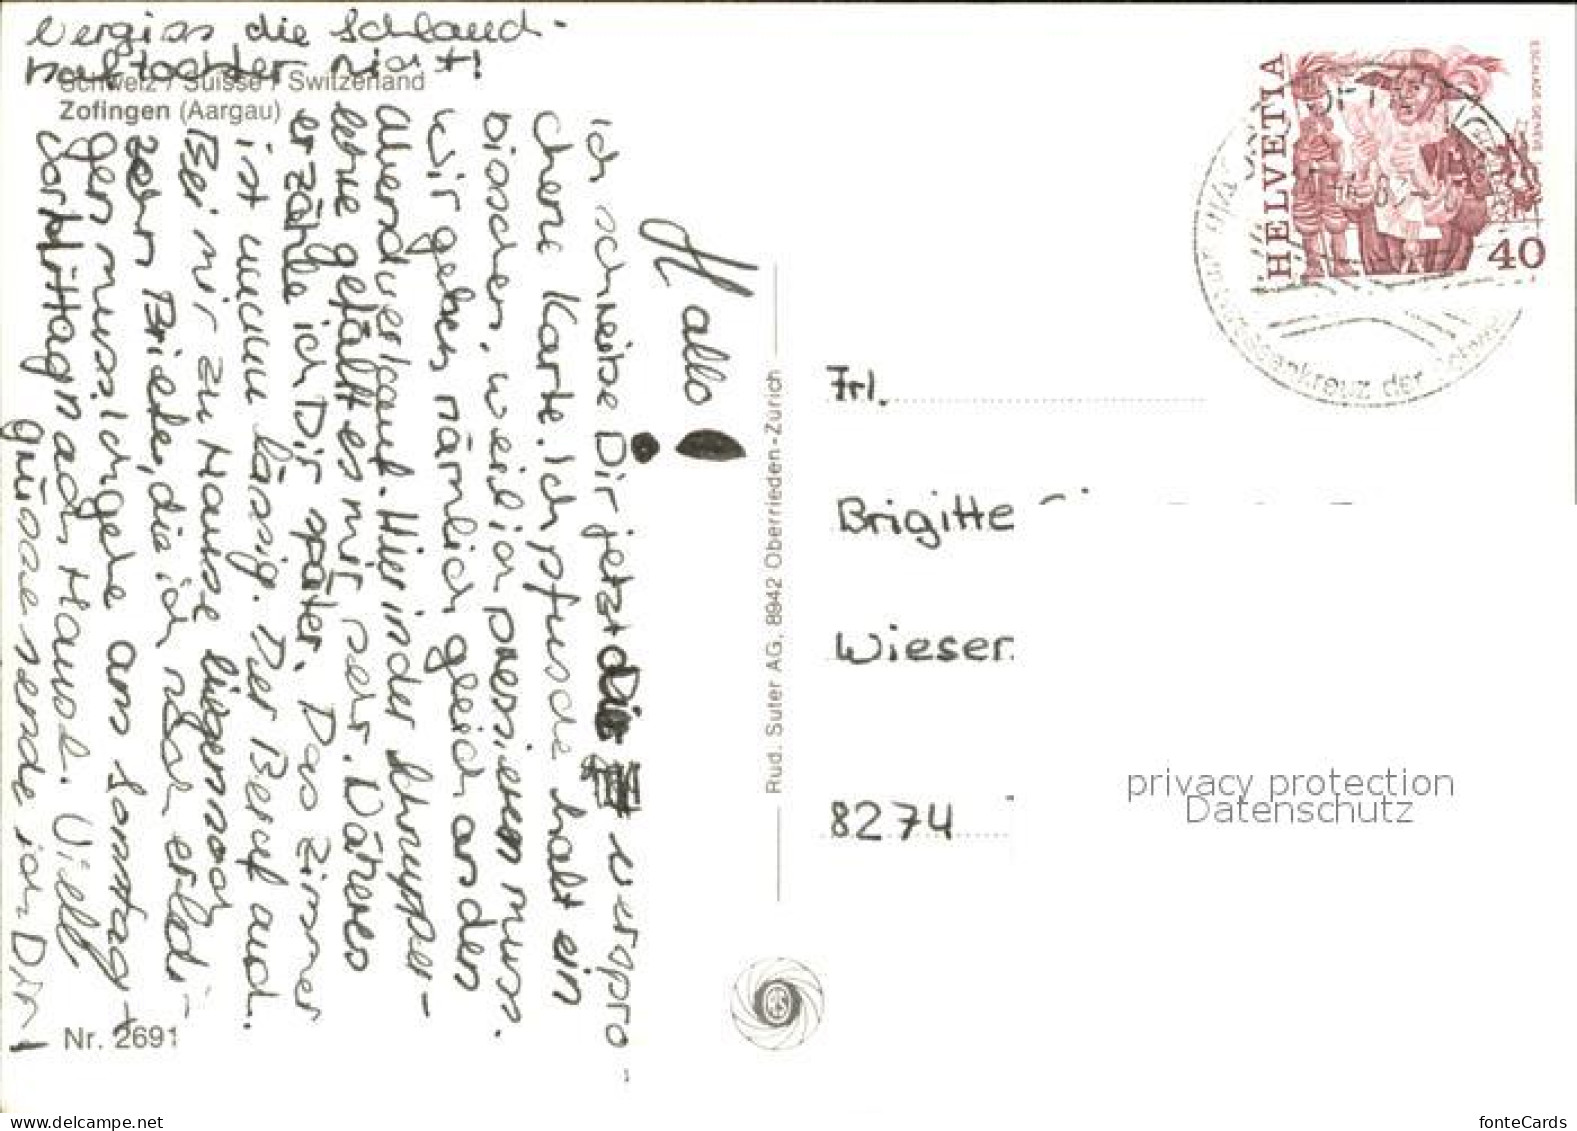 Vergiss die Schland-
haftochter nicht!
Schweiz / Suisse / Switzerland
Zofingen (Aargau)
Hallo!
Ich schreibe Dir jetzt die verspro-
chene Karte. Ich pfusche halt ein
bisschen, weil ich pressieren muss.
Wir gehen nämlich gleich an den
Abendverkauf. Hier in der Schnupper-
lehre gefällt es mir sehr. Näheres
erzähle ich Dir später. Das Zimmer
ist uuuu lässig. Der Beruf auch.
Bei mir zu Hause liegen noch
Briefe, die ich noch erledi-
gen muss. Ich gehe am Sonntag-
vormittag nach Hause. Viele
Grüsse sende ich Dir!
Nr. 2691
Rud. Suter AG, 8942 Oberrieden-Zürich
HELVETIA
ESCALADE GENÈVE
40
kreuz der
Frl.
Brigitte
Wieser
8274
privacy protection
Datenschutz
www.delcampe.net
fonteCards